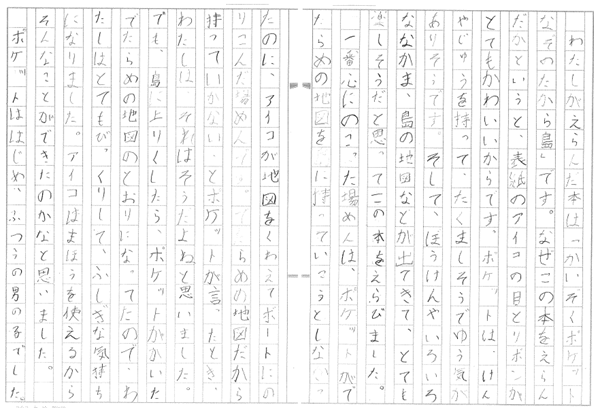 わたしがえらんだ本は「かいぞくポケット
なぞのたから島」です。なぜこの本をえらん
だかというと、表紙のアイコの目とリボンが
とてもかわいいからです。ポケットは、けん
やじゅうを持って、たくましそうでゆう気が
ありそうです。そして、ぼうけんやいろいろ
ななかま、島の地図などが出てきて、とても
楽しそうだと思ってこの本をえらびました。
一番心にのこった場めんは、ポケットがで
たらめの地図を 持っていこうとしない
たのに、アイコが地図をくわえてボートにの
りこんだ場めん らめの地図だから
持っていかない」とポケットが言ったとき、
わたしは、それはそうだよねと思いました。
でも、島に上りくしたら、ポケットがかいた
でたらめの地図のとおりになってたので、わ
たしはとてもびっくりして、ふしぎな気持ち
になりました。アイコはまほうを使えるから
そんなことができたのかなと思いました。
ポケットははじめ、ふつうの男の子でした。